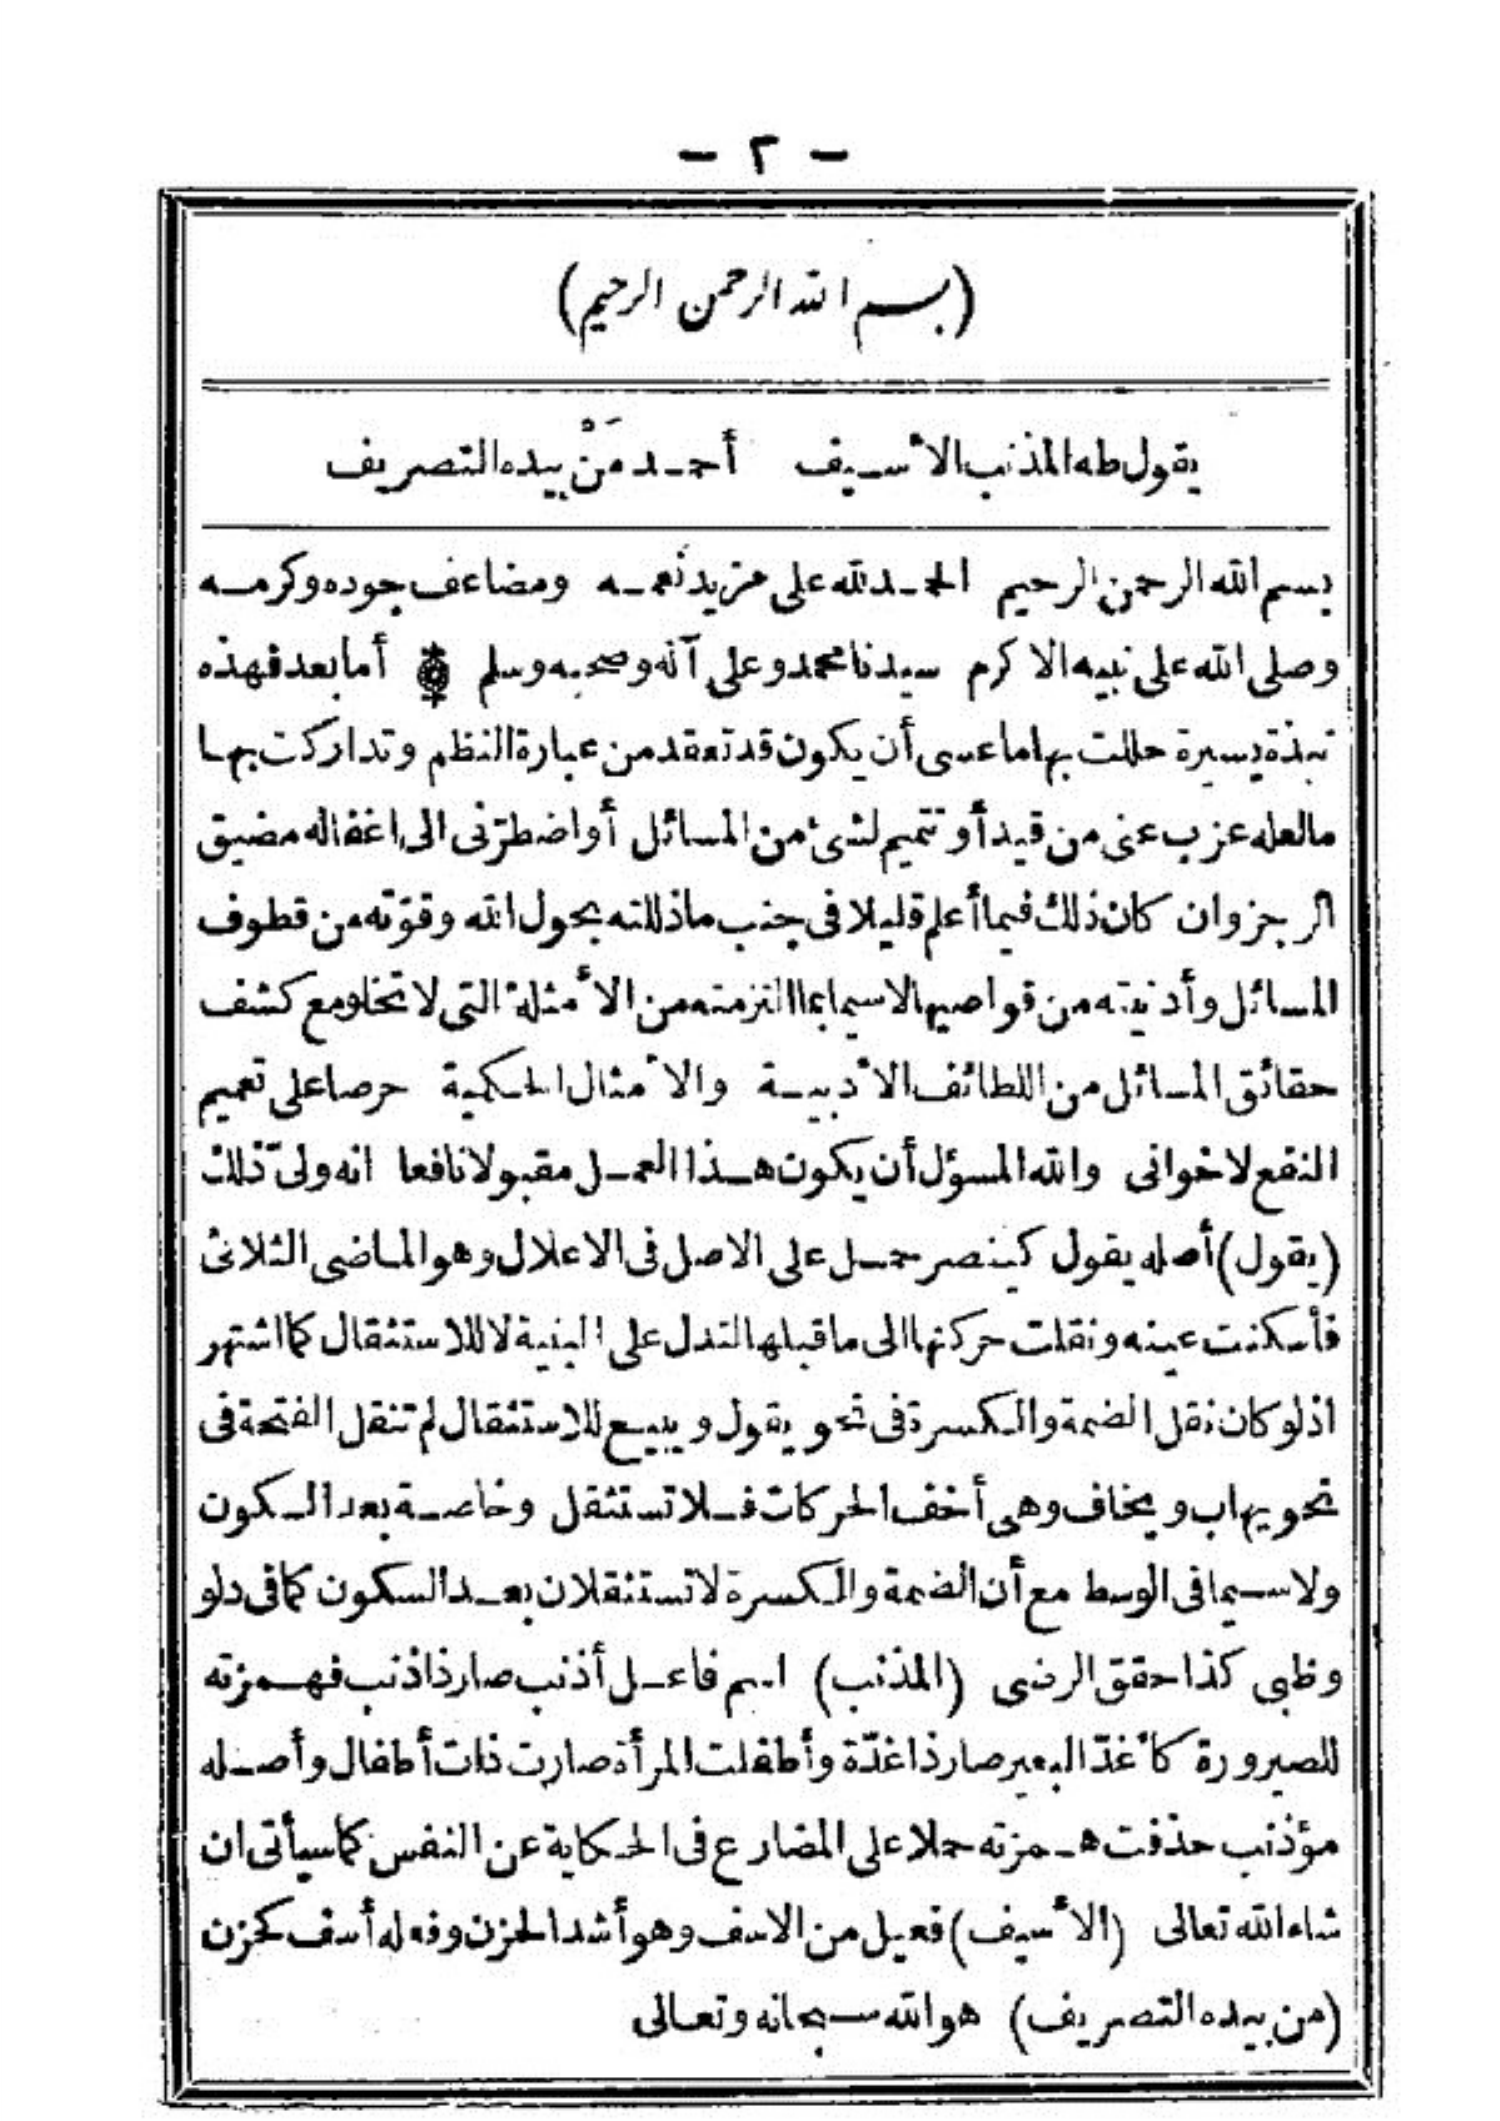 - ٢ -
(بسم الله الرحمن الرحيم)
يقول طه المذنب الأسيف أحمد مَنْ بيده التصريف
بسم الله الرحمن الرحيم الحمد لله على مزيد نعمه ومضاعف جوده وكرمه
وصلى الله على نبيه الاكرم سيدنا محمد وعلى آله وصحبه وسلم أما بعد فهذه
نبذة يسيرة حللت بها ما عسى أن يكون قد تعقد من عبارة النظم وتداركت بها
ما لعله عزب عنى من قيد أو تتميم لشئ من المسائل أو اضطرّنى الى اغفاله مضيق
الرجز وان كان ذلك فيما أعلم قليلا فى جنب ما ذللته بحول الله وقوّته من قطوف
المسائل وأدنيته من قواصيها لاسيما بما التزمته من الأمثلة التى لا تخلو مع كشف
حقائق المسائل من اللطائف الأدبية والأمثال الحكمية حرصا على تعميم
النفع لاخوانى والله المسؤل أن يكون هذا العمل مقبولا نافعا انه ولىّ ذلك
(يقول) أصله يقول كينصر حمل على الاصل فى الاعلال وهو الماضى الثلاثى
فأسكنت عينه ونقلت حركتها الى ما قبلها لتدل على البنية لا للاستثقال كما اشتهر
اذ لو كان نقل الضمة والكسرة فى نحو يقول ويبيع للاستثقال لم تنقل الفتحة فى
نحو يهاب ويخاف وهى أخف الحركات فلا تستثقل وخاصة بعد السكون
ولاسيما فى الوسط مع أن الضمة والكسرة لا تستثقلان بعد السكون كما فى دلو
وظبى كذا حقق الرضى (المذنب) اسم فاعل أذنب صار ذا ذنب فهمزته
للصيرورة كأغدّ البعير صار ذا غدّة وأطفلت المرأة صارت ذات أطفال وأصله
مؤذنب حذفت همزته حملا على المضارع فى الحكاية عن النفس كما سيأتى ان
شاء الله تعالى (الأسيف) فعيل من الاسف وهو أشد الحزن وفعله أسف كحزن
(من بيده التصريف) هو الله سبحانه وتعالى